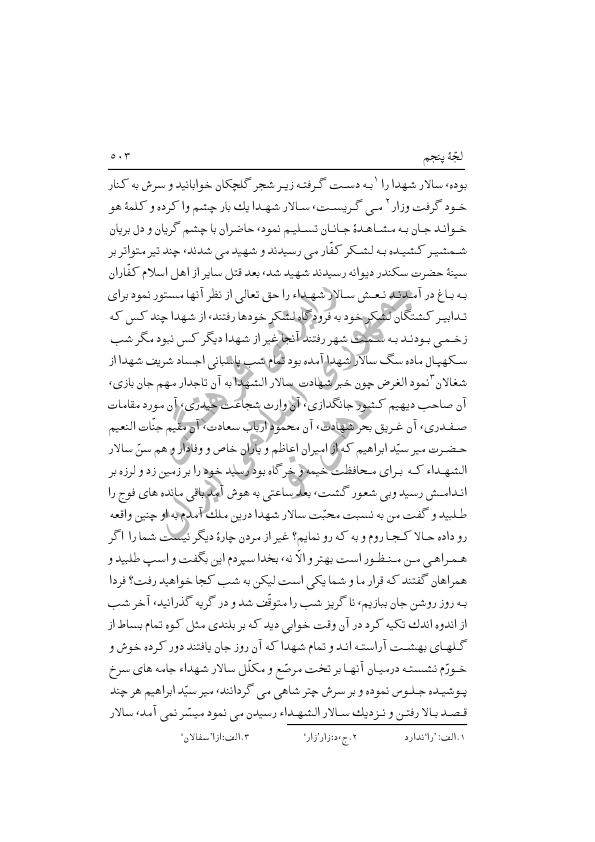 لجّهٔ پنجم ۵۰۳
بوده، سالار شهدا را ۱ به دست گرفته زیر شجر گلچکان خوابانید و سرش به کنار
خود گرفت وزار ۲ می گریست، سالار شهدا یك بار چشم وا کرده و کلمهٔ هو
خواند جان به مشاهدهٔ جانان تسلیم نمود، حاضران با چشم گریان و دل بریان
شمشیر کشیده به لشکر کفّار می رسیدند و شهید می شدند، چند تیر متواتر بر
سینهٔ حضرت سکندر دیوانه رسیدند شهید شد، بعد قتل سایر از اهل اسلام کفّاران
به باغ در آمدند نعش سالار شهداء را حق تعالی از نظر آنها مستور نمود برای
تدابیر کشتگان لشکر خود به فرودگاه لشکر خودها رفتند، از شهدا چند کس که
زخمی بودند به سمت شهر رفتند آنجا غیر از شهدا دیگر کس نبود مگر شب
سکهپال ماده سگ سالار شهدا آمده بود تمام شب پاسبانی اجساد شریف شهدا از
شغالان ۳ نمود الغرض چون خبر شهادت سالار الشهدا به آن تاجدار مهم جان بازی،
آن صاحب دیهیم کشور جانگدازی، آن وارث شجاعت حیدری، آن مورد مقامات
صفدری، آن غریق بحر شهادت، آن محمود ارباب سعادت، آن مقیم جنّات النعیم
حضرت میر سیّد ابراهیم که از امیران اعاظم و یاران خاص و وفادار و هم سنّ سالار
الشهداء که برای محافظت خیمه و خرگاه بود رسید خود را بر زمین زد و لرزه بر
اندامش رسید وبی شعور گشت، بعد ساعتی به هوش آمد باقی مانده های فوج را
طلبید و گفت من به نسبت محبّت سالار شهدا درین ملك آمدم به او چنین واقعه
رو داده حالا کجا روم و به که رو نمایم؟ غیر از مردن چارهٔ دیگر نیست شما را اگر
همراهی من منظور است بهتر و الّا نه، بخدا سپردم این بگفت و اسپ طلبید و
همراهان گفتند که قرار ما و شما یکی است لیکن به شب کجا خواهید رفت؟ فردا
به روز روشن جان ببازیم، نا گریز شب را متوقّف شد و در گریه گذرانید، آخر شب
از اندوه اندك تکیه کرد در آن وقت خوابی دید که بر بلندی مثل کوه تمام بساط از
گلهای بهشت آراسته اند و تمام شهدا که آن روز جان یافتند دور کرده خوش و
خورّم نشسته درمیان آنها بر تخت مرصّع و مکلّل سالار شهداء جامه های سرخ
پوشیده جلوس نموده و بر سرش چتر شاهی می گردانند، میر سیّد ابراهیم هر چند
قصد بالا رفتن و نزدیك سالار الشهداء رسیدن می نمود میسّر نمی آمد، سالار
۱.الف: 'را' ندارد ۲.ج،د:زار'زار' ۳.الف:ازا'سفالان'